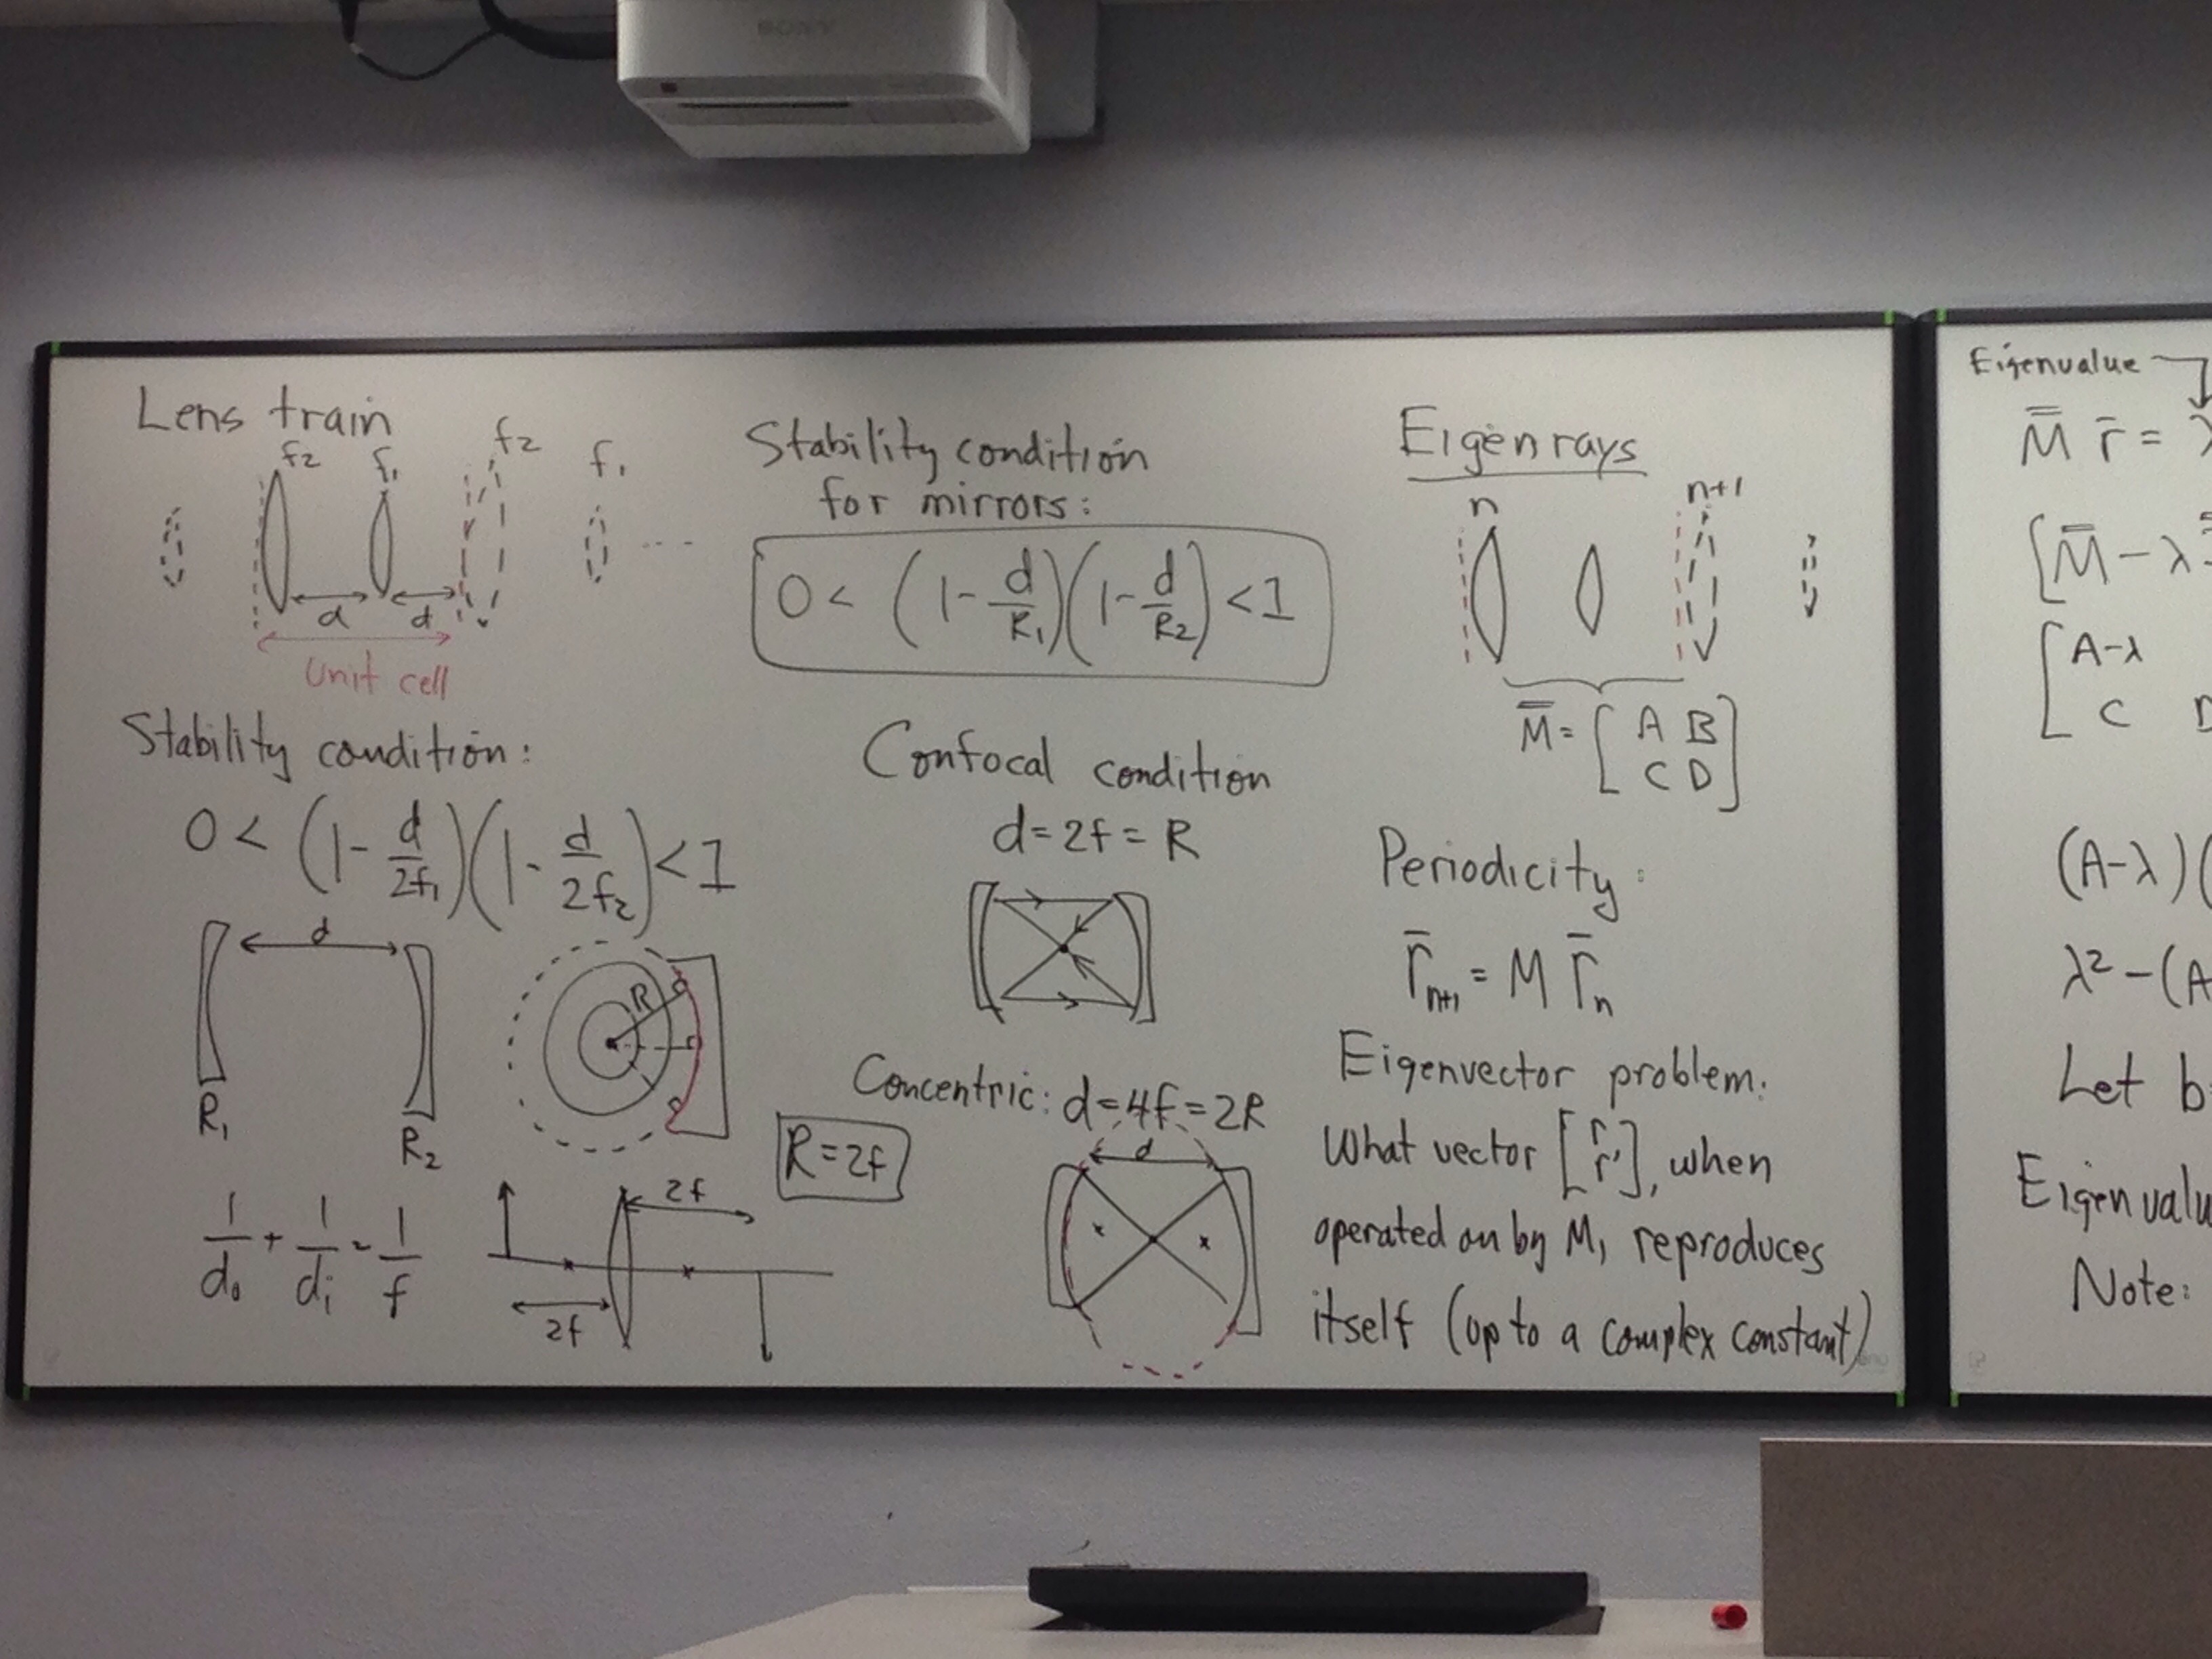 SONY
Lens train
f2 f1 f2 f1
d d ...
Unit cell
Stability condition:
0 < (1 - d/2f1)(1 - d/2f2) < 1
d
R
R1 R2
R=2f
1/d0 + 1/di = 1/f
2f
2f
Stability condition
for mirrors:
0 < (1 - d/R1)(1 - d/R2) < 1
Confocal condition
d=2f=R
Concentric: d=4f=2R
d
Eigenrays
n n+1
M̿ = [A B
C D]
Periodicity:
r̄n+1 = M r̄n
Eigenvector problem:
What vector [r r'], when
operated on by M, reproduces
itself (up to a complex constant)
Eigenvalue
M̿ r̄ = λ
[M̿ - λ
[A-λ
C
(A-λ)(
λ² - (A
Let b
Note: